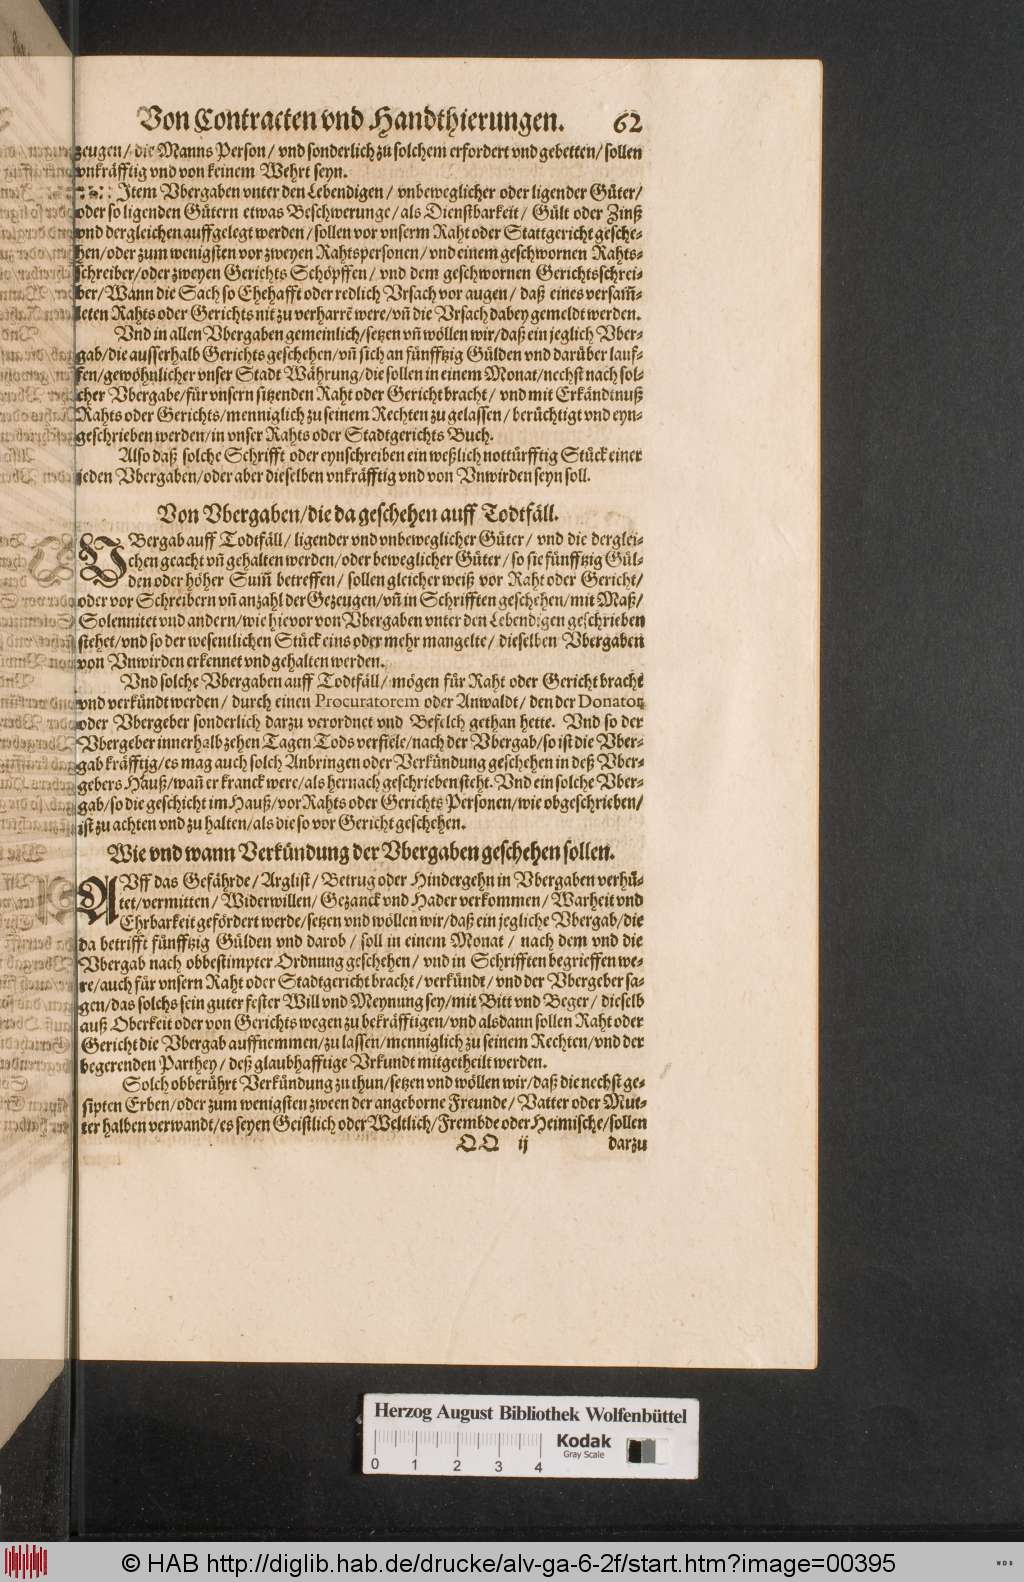 Von Contracten vnd Handthierungen. 62
zeugen/ die Manns Person/ vnd sonderlich zu solchem erfordert vnd gebetten/ sollen
vnkräfftig vnd von keinem Wehrt seyn.
Item Vbergaben vnter den Lebendigen/ vnbeweglicher oder ligender Güter/
oder so ligenden Gütern etwas Beschwerunge/ als Dienstbarkeit/ Gült oder Zinß
vnd dergleichen auffgelegt werden/ sollen vor vnserm Raht oder Stattgericht gesche-
hen/ oder zum wenigsten vor zweyen Rahtspersonen/ vnd einem geschwornen Rahts-
schreiber/ oder zweyen Gerichts Schöpffen/ vnd dem geschwornen Gerichtsschrei-
ber/ Wann die Sach so Ehehafft oder redlich Vrsach vor augen/ daß eines versam̃-
leten Rahts oder Gerichts nit zu verharrẽ were/ vñ die Vrsach dabey gemeldt werden.
Vnd in allen Vbergaben gemeinlich/ setzen vñ wöllen wir/ daß ein jeglich Vber-
gab/ die ausserhalb Gerichts geschehen/ vñ sich an fünfftzig Gülden vnd darüber lauf-
fen/ gewöhnlicher vnser Stadt Währung/ die sollen in einem Monat/ nechst nach sol-
cher Vbergabe/ für vnsern sitzenden Raht oder Gericht bracht/ vnd mit Erkändtnuß
Rahts oder Gerichts/ menniglich zu seinem Rechten zu gelassen/ berüchtigt vnd eyn-
geschrieben werden/ in vnser Rahts oder Stadtgerichts Buch.
Also daß solche Schrifft oder eynschreiben ein weßlich nottürfftig Stück einer
jeden Vbergaben/ oder aber dieselben vnkräfftig vnd von Vnwirden seyn soll.
Von Vbergaben/ die da geschehen auff Todtfäll.
VBergab auff Todtfäll/ ligender vnd vnbeweglicher Güter/ vnd die derglei-
chen geacht vñ gehalten werden/ oder beweglicher Güter/ so sie fünfftzig Gül-
den oder höher Sum̃ betreffen/ sollen gleicher weiß vor Raht oder Gericht/
oder vor Schreibern vñ anzahl der Gezeugen/ vñ in Schrifften geschehen/ mit Maß/
Solennitet vnd andern/ wie hievor von Vbergaben vnter den Lebendigen geschrieben
stehet/ vnd so der wesentlichen Stück eins oder mehr mangelte/ dieselben Vbergaben
von Vnwirden erkennet vnd gehalten werden.
Vnd solche Vbergaben auff Todtfäll/ mögen für Raht oder Gericht bracht
vnd verkündt werden/ durch einen Procuratorem oder Anwaldt/ den der Donator
oder Vbergeber sonderlich darzu verordnet vnd Befelch gethan hette. Vnd so der
Vbergeber innerhalb zehen Tagen Tods verfiele/ nach der Vbergab/ so ist die Vber-
gab kräfftig/ es mag auch solch Anbringen oder Verkündung geschehen in deß Vber-
gebers Hauß/ wañ er kranck were/ als hernach geschrieben steht. Vnd ein solche Vber-
gab/ so die geschicht im Hauß/ vor Rahts oder Gerichts Personen/ wie obgeschrieben/
ist zu achten vnd zu halten/ als die so vor Gericht geschehen.
Wie vnd wann Verkündung der Vbergaben geschehen sollen.
AVff das Gefährde/ Arglist/ Betrug oder Hindergehn in Vbergaben verhü-
tet/ vermitten/ Widerwillen/ Gezanck vnd Hader verkommen/ Warheit vnd
Ehrbarkeit gefördert werde/ setzen vnd wöllen wir/ daß ein jegliche Vbergab/ die
da betrifft fünfftzig Gülden vnd darob/ soll in einem Monat/ nach dem vnd die
Vbergab nach obbestimpter Ordnung geschehen/ vnd in Schrifften begrieffen we-
re/ auch für vnsern Raht oder Stadtgericht bracht/ verkündt/ vnd der Vbergeber sa-
gen/ das solchs sein guter fester Will vnd Meynung sey/ mit Bitt vnd Beger/ dieselb
auß Oberkeit oder von Gerichts wegen zu bekräfftigen/ vnd alsdann sollen Raht oder
Gericht die Vbergab auffnemmen/ zu lassen/ menniglich zu seinem Rechten/ vnd der
begerenden Parthey/ deß glaubhafftige Vrkundt mitgetheilt werden.
Solch obberührt Verkündung zu thun/ setzen vnd wöllen wir/ daß die nechst ge-
sipten Erben/ oder zum wenigsten zween der angeborne Freunde/ Vatter oder Mut-
ter halben verwandt/ es seyen Geistlich oder Weltlich/ Frembde oder Heimische/ sollen
QQ ij darzu
Herzog August Bibliothek Wolfenbüttel
Kodak
Gray Scale
0 1 2 3 4
© HAB http://diglib.hab.de/drucke/alv-ga-6-2f/start.htm?image=00395
WDB